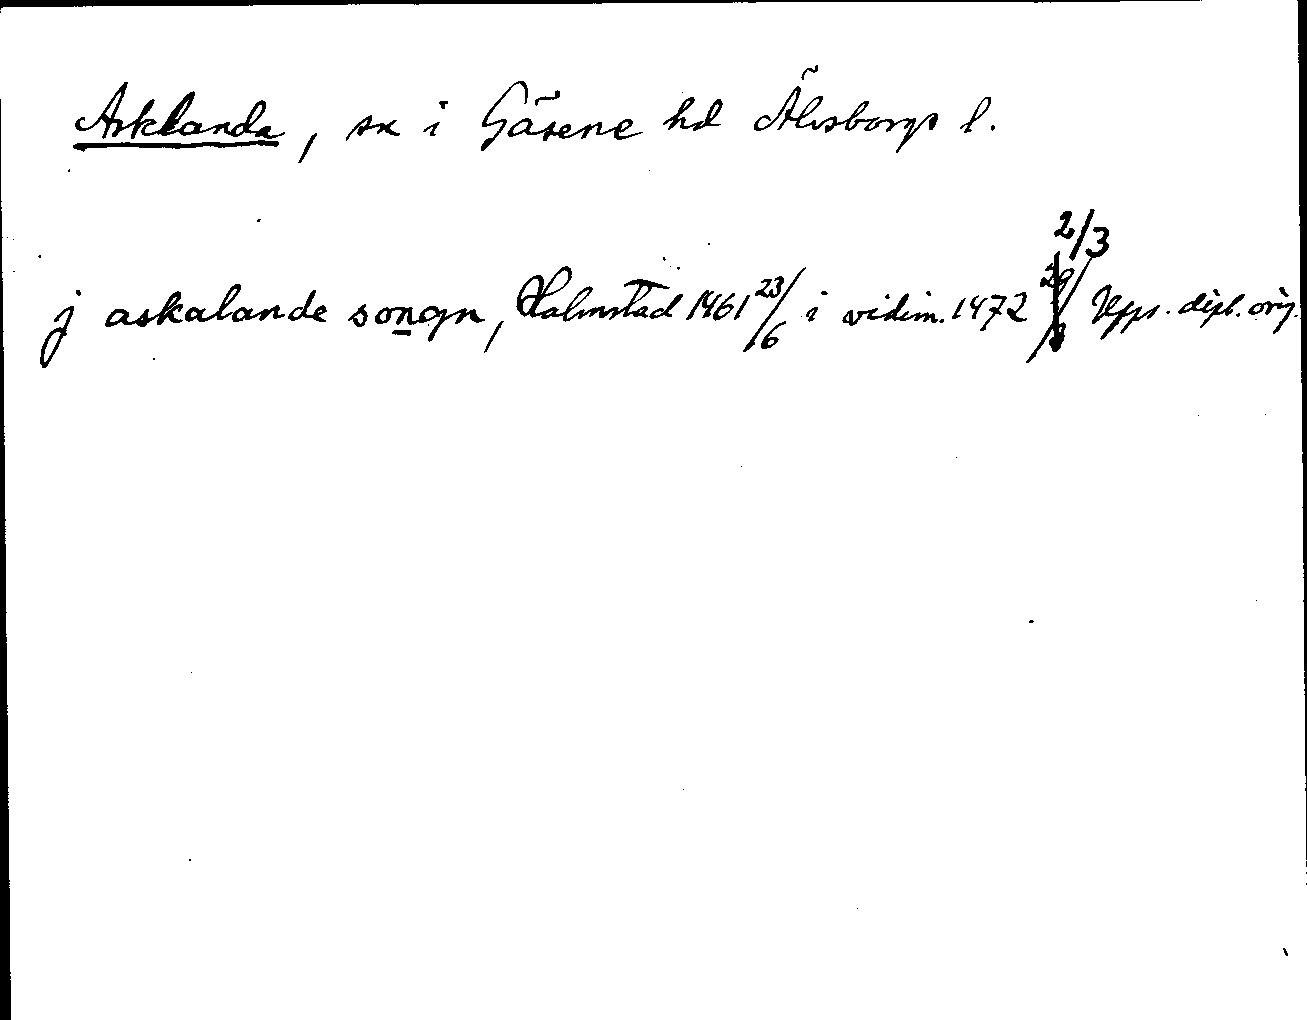 Asklanda, sn i Gäsene hd Älvsborgs l.
j askalande songn, Halmstad 1461 23/6 i vidim. 1472 2/3 Upps. dipl. orig.